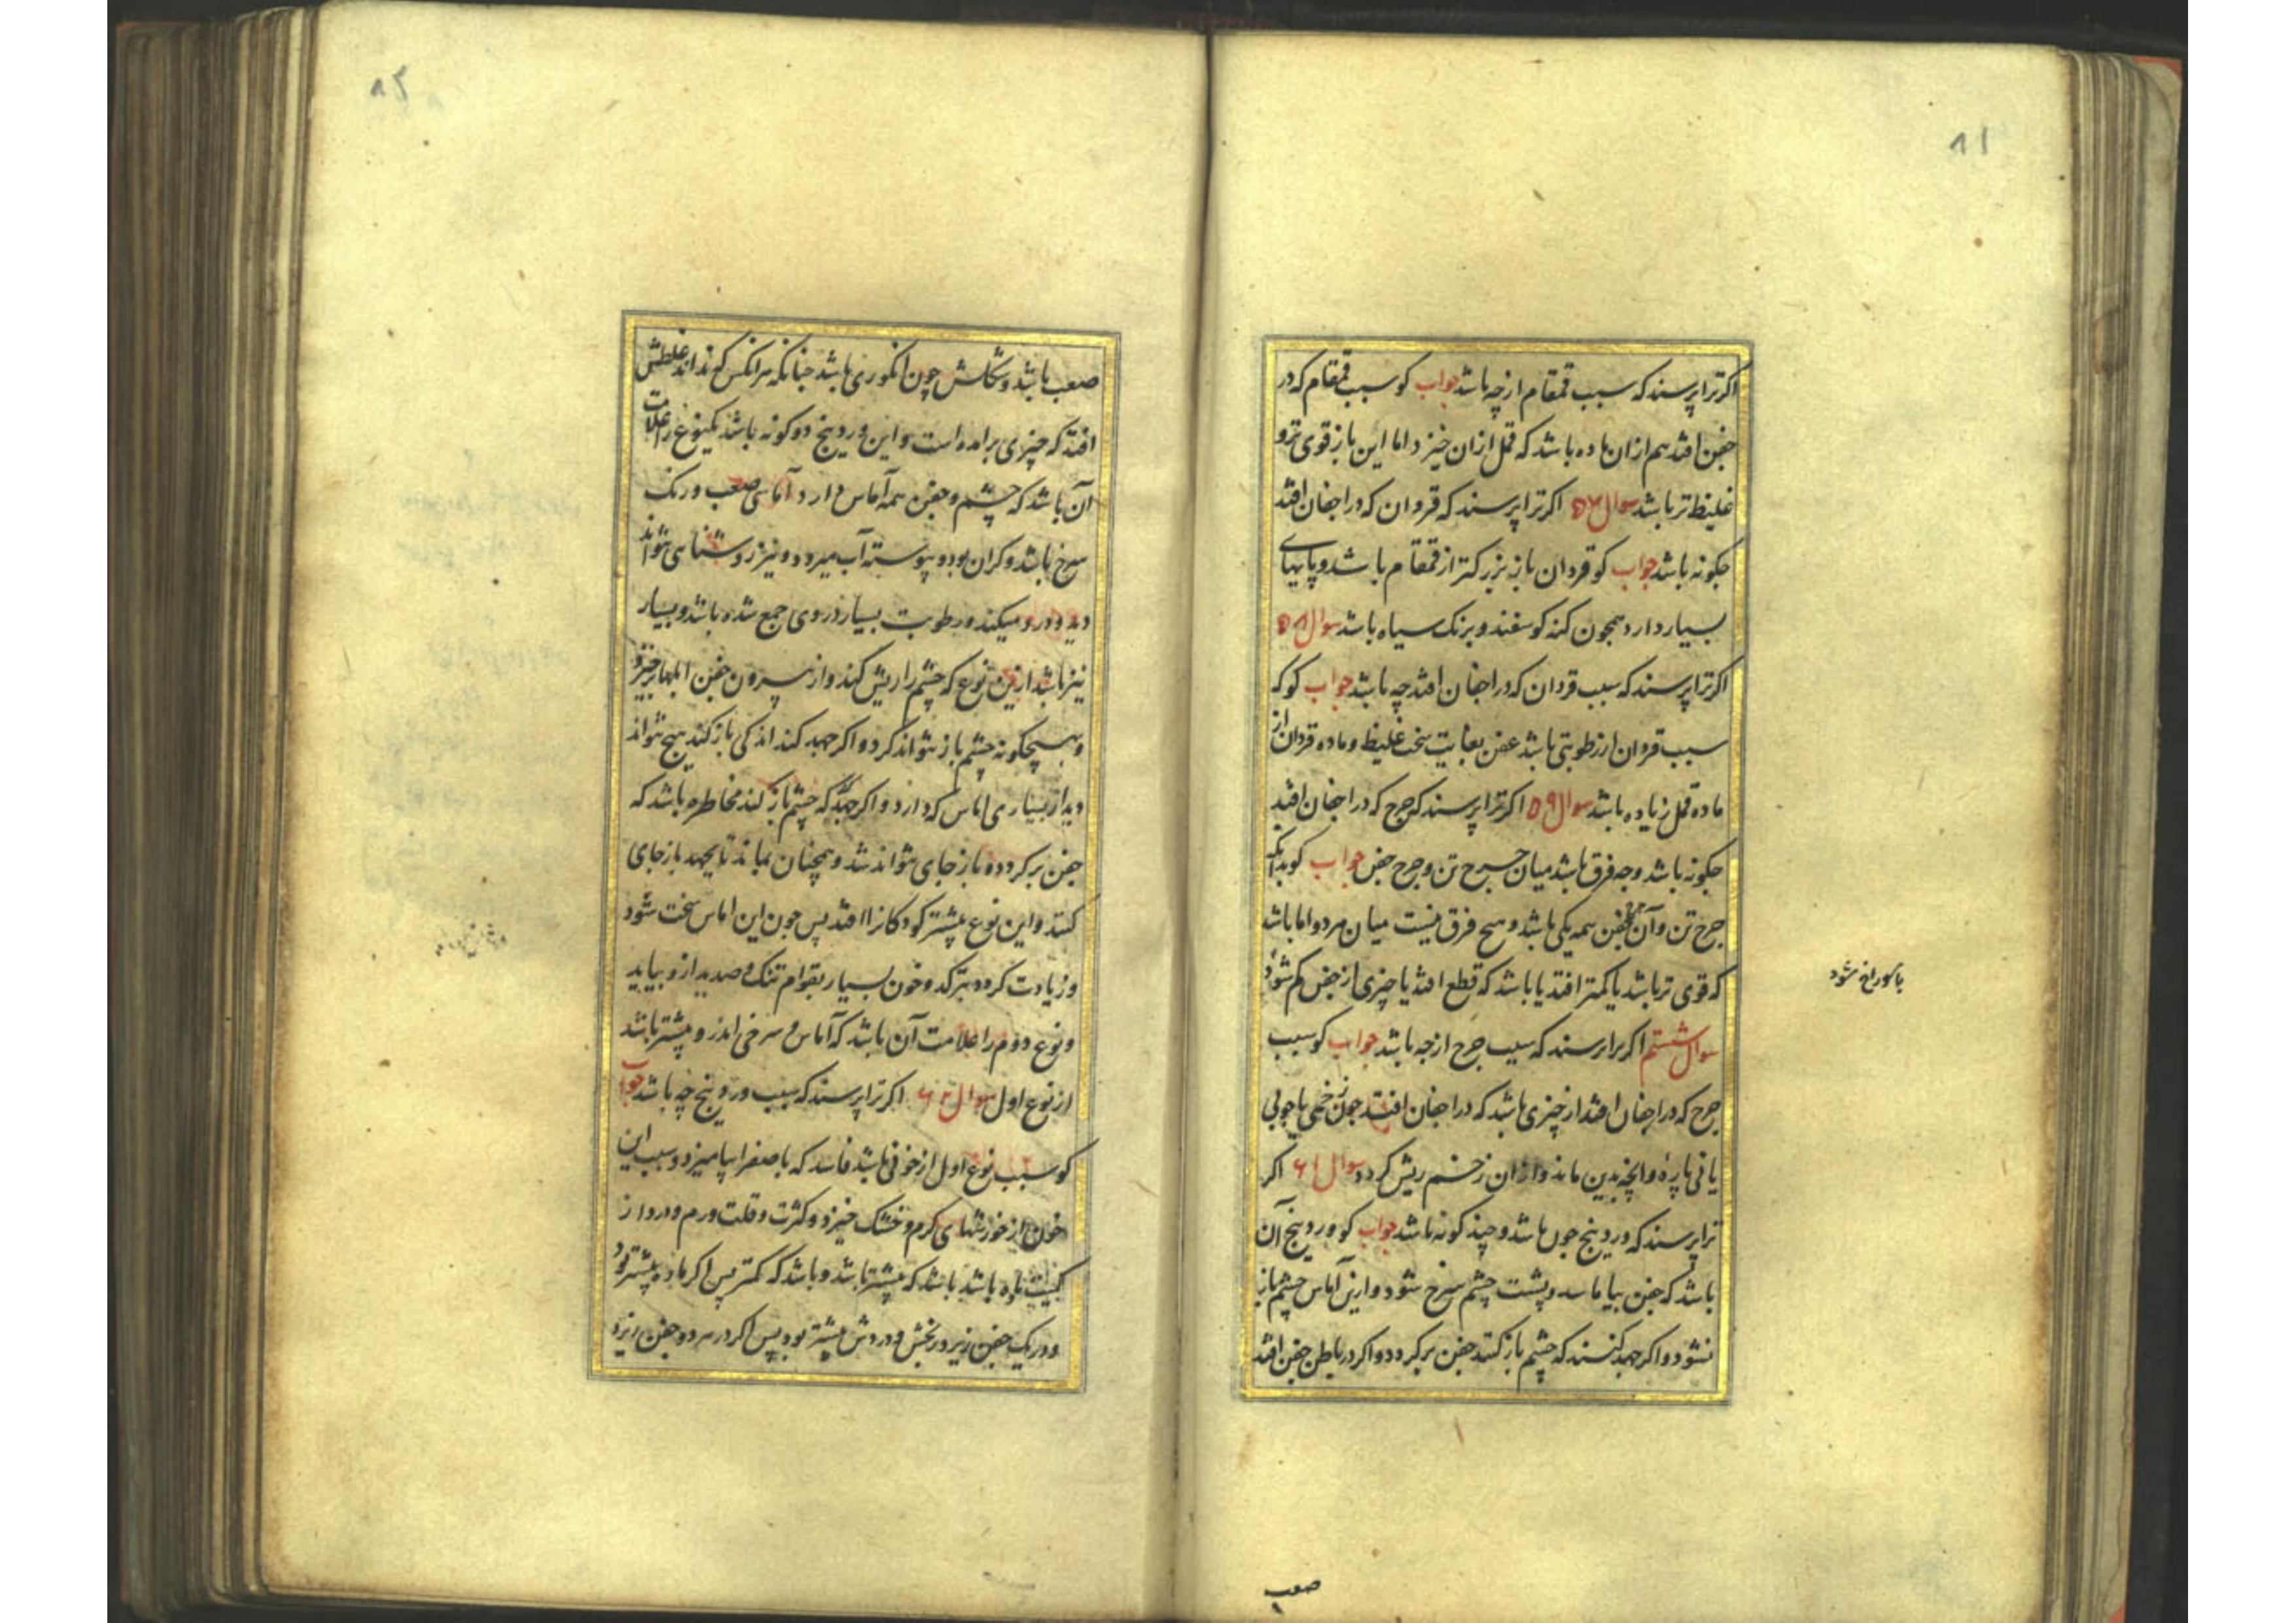 ۸۱
اکر ترا پرسند که سبب قمقام از چه باشد جواب کو سبب قمقام که در
جفن افتد هم از ان ماده باشد که قمل از ان خیزد اما این باز قوی تر و
غلیظ تر باشد سوال ۵۷ اکر ترا پرسند که قردان که در اجفان افتد
چکونه باشد جواب کو قردان باز بزرکتر از قمقام باشد و پایهای
بسیار دارد همچون کنه کوسفند و برنک سیاه باشد سوال ۵۸
اکر ترا پرسند که سبب قردان که در اجفان افتد چه باشد جواب کو که
سبب قردان از رطوبتی باشد عفن بغایت سخت غلیظ و ماده قردان از
ماده قمل زیاده باشد سوال ۵۹ اکر ترا پرسند که جرح که در اجفان افتد
چکونه باشد و چه فرق باشد میان جرح تن و جرح جفن جواب کو بدانکه
جرح تن و آن جفن همه یکی باشد و هیچ فرق نیست میان هر دو اما باشد
که قوی تر باشد یا کمتر افتد یا باشد که قطع افتد یا چیزی از جفن کم شود
یا سوراخ شود
سوال شستم اکر ترا پرسند که سبب جرح از چه باشد جواب کو سبب
جرح که در اجفان افتد از چیزی باشد که در اجفان افتد چون زخمی یا چوبی
یا نی پاره و انچه بدین ماند و از ان زخم ریش کردد سوال ۶۱ اکر
ترا پرسند که وردینج چون باشد و چند کونه باشد جواب کو وردینج آن
باشد که جفن بیاماسد و پشت چشم سرخ شود و ازین آماس چشم باز
نشود و اکر جهد کنند که چشم باز کنند جفن برکردد و اکر در باطن جفن افتد
صعب
۸۲
صعب باشد و شکلش چون انکوری باشد چنانکه هر انکس که نداند غلطش
افتد که چیزی برآمده است و این وردینج دو کونه باشد یکنوع را علامت
آن باشد که چشم و جفن همه آماس دارد آماسی صعب و رنک
سرخ باشد و کران بود و پیوسته آب میرود و نیز روشنایی نتواند
دید و درد میکند و رطوبت بسیار در وی جمع شده باشد و بسیار
نیز باشد ازین نوع که چشم را ریش کند و از بیرون جفن ابلها برخیزد
و بهیچکونه چشم باز نتواند کرد و اکر جهد کند اندکی باز کند هیچ نتواند
دید از بسیاری اماس که دارد و اکر جهد کند که چشم باز کند مخاطره باشد که
جفن برکردد و باز جای نتواند شد و همچنان بماند تا بجهد باز جای
کنند و این نوع بیشتر کودکانرا افتد پس چون این اماس سخت شود
و زیادت کردد بترکد و خون بسیار بقوام تنک و صدید از و بیاید
و نوع دوم را علامت آن باشد که آماس و سرخی اندرو بیشتر باشد
از نوع اول سوال ۶۲ اکر ترا پرسند که سبب وردینج چه باشد جواب
کو سبب نوع اول از خونی باشد فاسد که با صفرا بیامیزد و سبب این
خون از خورشهای کرم و خشک خیزد و کثرت و قلت ورم و درد از
کمیت ماده باشد باشد که بیشتر باشد و باشد که کمتر پس اکر ماده بیشتر بود
و در یک جفن ریزد رنجش و دردش بیشتر بود پس اکر در هر دو جفن ریزد